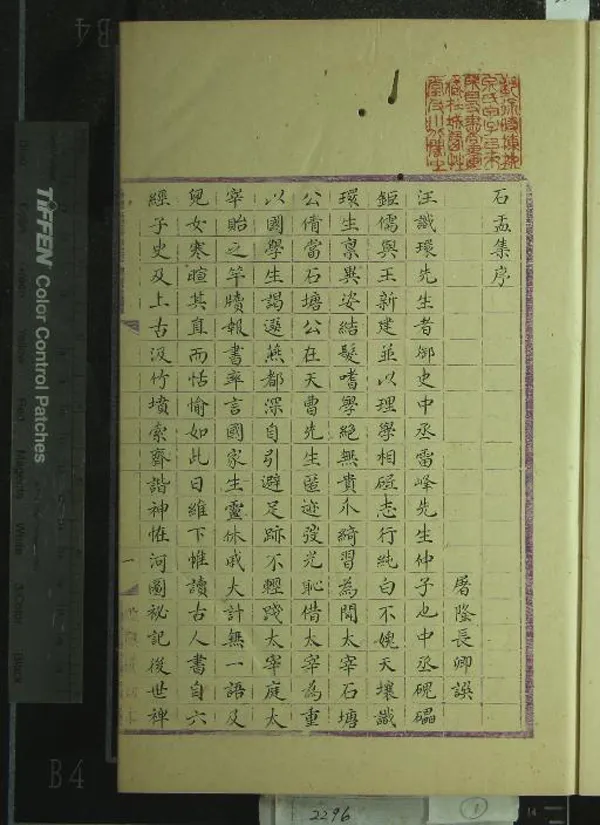 石盂集序
屠隆長卿譔
汪識環先生者御史中丞雷峰先生仲子也中丞磈礧
鉅儒與王新建並以理學相磋志行純白不媿天壤識
環生稟異姿結髮嗜學絕無貴介綺習為閒太宰石塘
公倩當石塘公在天曹先生匿迹弢光恥借太宰為重
以國學生謁選燕都深自引避足跡不輕踐太宰庭太
宰貽之竿牘報書率言國家生靈休戚大計無一語及
兒女寒暄其直而恬愉如此日維下帷讀古人書自六
經子史及上古汲竹墳索齊諧神恠河圖祕記後世稗
一
TIFFEN Color Control Patches
B4
B4
2296
1